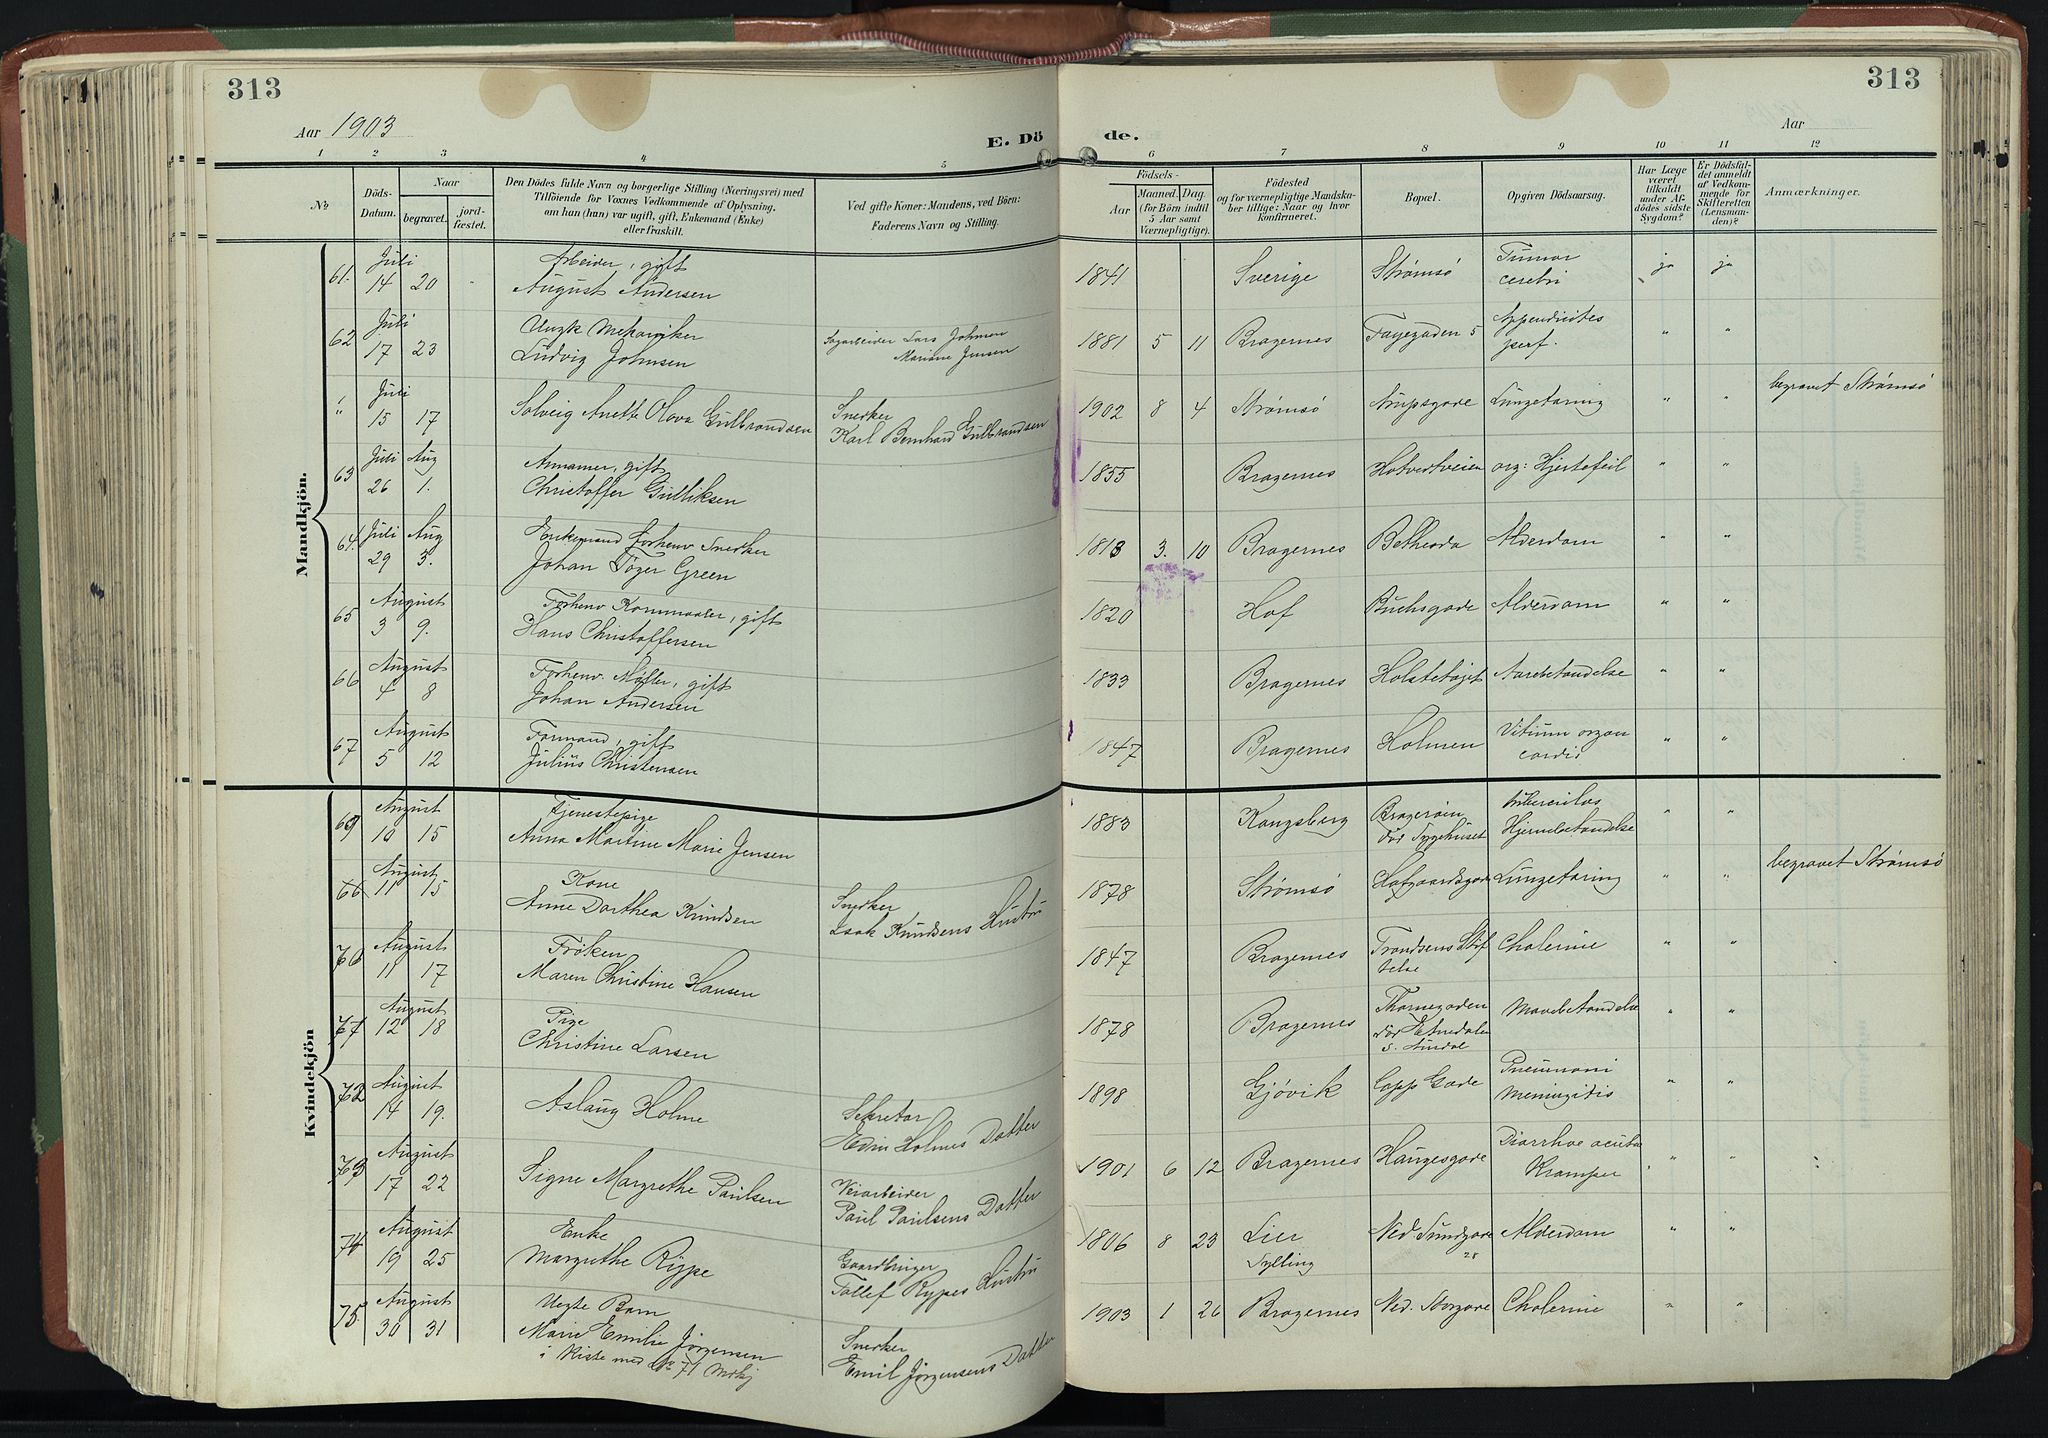 313
313
Aar 1903
E. Dö de.
Aar
1 2 3 4 5 6 7 8 9 10 11 12
№
Döds-Datum.
Naar
begravet.
jord-fæstet.
Den Dödes fulde Navn og borgerlige Stilling (Næringsvei) med
Tilföiende for Voxnes Vedkommende af Oplysning,
om han (hun) var ugift, gift, Enkemand (Enke)
eller fraskilt.
Ved gifte Koner: Mandens, ved Börn:
Faderens Navn og Stilling.
Födsels-
Aar
Maaned.
Dag.
(for Börn indtil
5 Aar samt
Værnepligtige).
Födested
og for værnepligtige Mandska-
ber tillige: Naar og hvor
konfirmeret.
Bopæl.
Opgiven Dödsaarsag.
Har Læge
været
tilkaldt
under Af-
dödes sidste
Sygdom?
Er Dödsfal-
det anmeldt
af Vedkom-
mende for
Skifteretten
(Lensman-
den)?
Anmærkninger.
Mandkjön.
Juli Arbeider, gift Tumor
61. 14 20 August Andersen 1841 Sverige Strømsö cerebri ja ja
Juli Ungk Mekaniker Lars Johnsen Appendicites
62 17 23 Ludvig Johnsen Mariane Jensen 1881 5 11 Bragernes Fayegaden 5 perf. " "
Juli Snedker begravet Strømsö
" 15 17 Solveig Anette Olava Gulbrandsen Karl Bernhard Gulbrandsen 1902 8 4 Strømsö Lungetæring " "
Juli Aug gift
63 26 1. Christoffer Gulliksen 1855 Bragernes Hotvedtveien org: Hjertefeil " "
Juli Aug Enkemand forhenv Snedker
64. 29 3. Johan Green 1818 3. 10 Bragernes Bethesda Alderdom " "
August Forhenv gift
65 3 9. Hans Christoffersen 1820 Hof Buchsgade Alderdom " "
August Forhenv. Møller, gift
66 4 8 Johan Andersen 1833 Bragernes Aarebetændelse " "
August Formand, gift Vitium organ
67 5 12 Julius Christensen 1847 Bragernes Holmen cordis " "
Kvindekjön
August Tjenestepige Tuberculos
69 10 15 Anna Martine Marie Jensen 1883 Kongsberg Bragerøen Hjernebetændelse " "
Død Sygehuset
August Kone Snedker begravet Strømsö
11 15 Anne Dorthea Knudsen Isak Knudsens Hustru 1878 Strømsö Hofgaardsgade Lungetæring " "
August Frøken
70 11 17 Maren Christine Hansen 1847 Bragernes Trondsens Stif Cholerine " "
telse
August Pige Thornegaden
71 12 18 Christine Larsen 1878 Bragernes Død Etnedalen Mavebetændelse " "
August Sekretær Pneumoni
72 14 19. Aslaug Holme Edin Holmes Datter 1898 Gjøvik Copp Gade Meningitis " "
August Veiarbeider Diarrhoe acuta
73 17 22 Signe Margrethe Paulsen Paul Paulsens Datter 1901 6 12 Bragernes Haugesgade Kramper " "
August Enke Gaardbruger
74 19 25 Margrethe Rype Tollef Rypes Hustru 1806 8 23 Lier Ned Sundgade Alderdom " "
Sylling 28
August Uegte Barn Snedker
75. 30 31 Marie Emilie Jørgensen Emil Jørgensens Datter 1903 1 26 Bragernes Ned. Storgade Cholerine " "
i Kiste med No 71 Mdkj